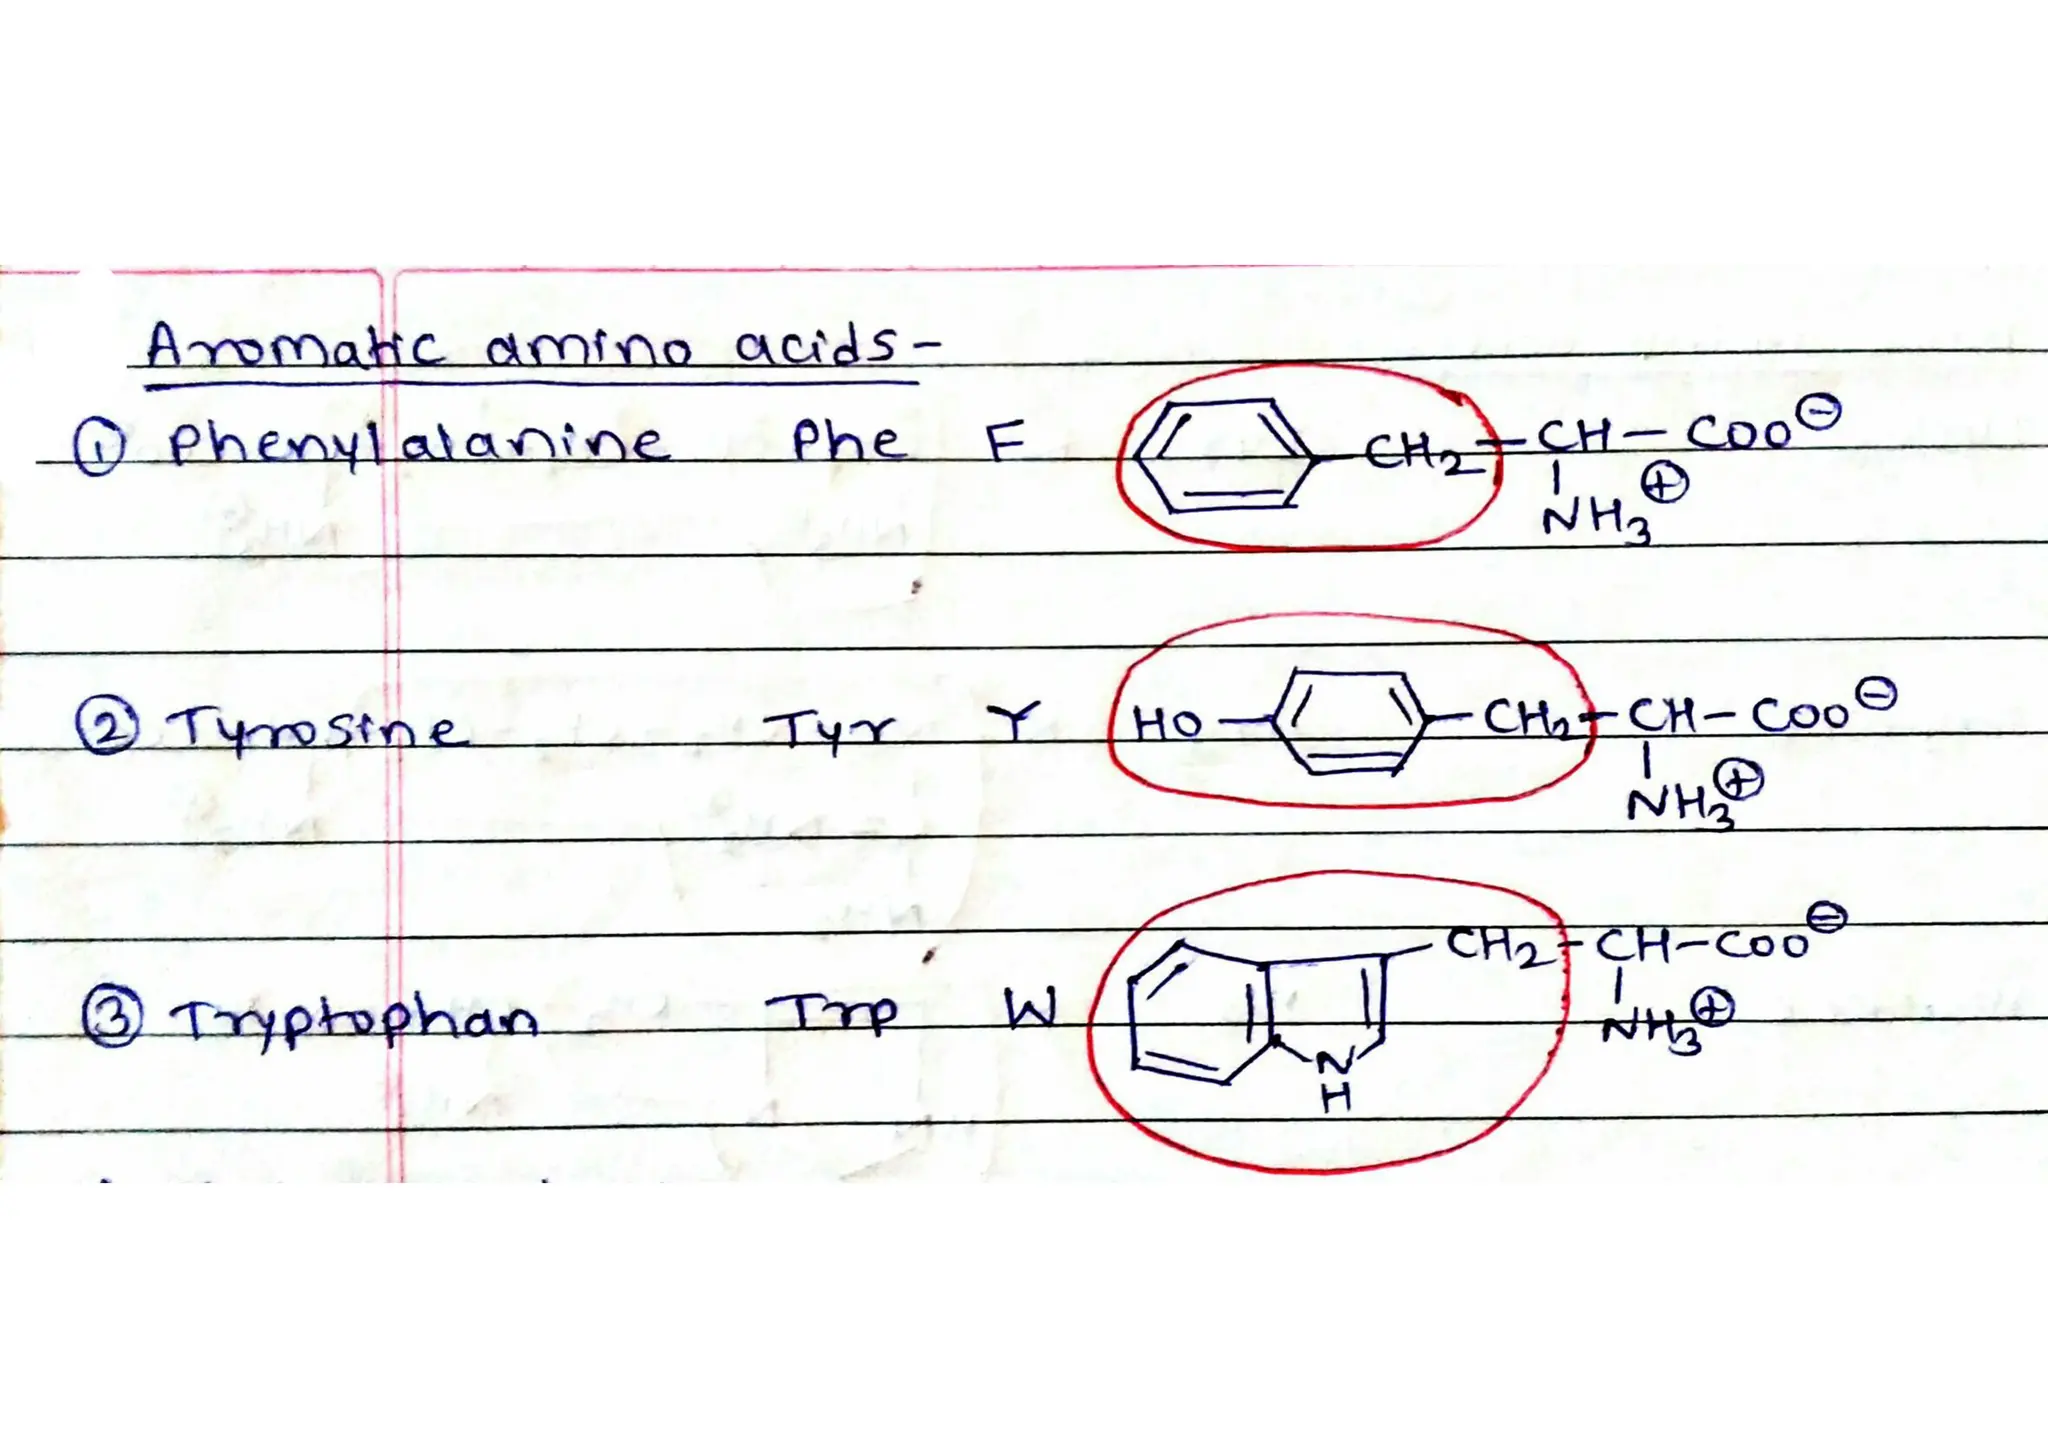 Aromatic amino acids-
① Phenylalanine Phe F CH₂-CH-COO⊖
NH₃⊕
② Tyrosine Tyr Y HO-CH₂-CH-COO⊖
NH₃⊕
③ Tryptophan Trp W CH₂-CH-COO⊖
NH₃⊕
N
H